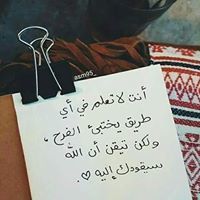 asm95_
أنت لا تعلم في أي
طريق يختبئ الفرح ،
ولكن تيقن أن الله
سيقودك إليه ♡.